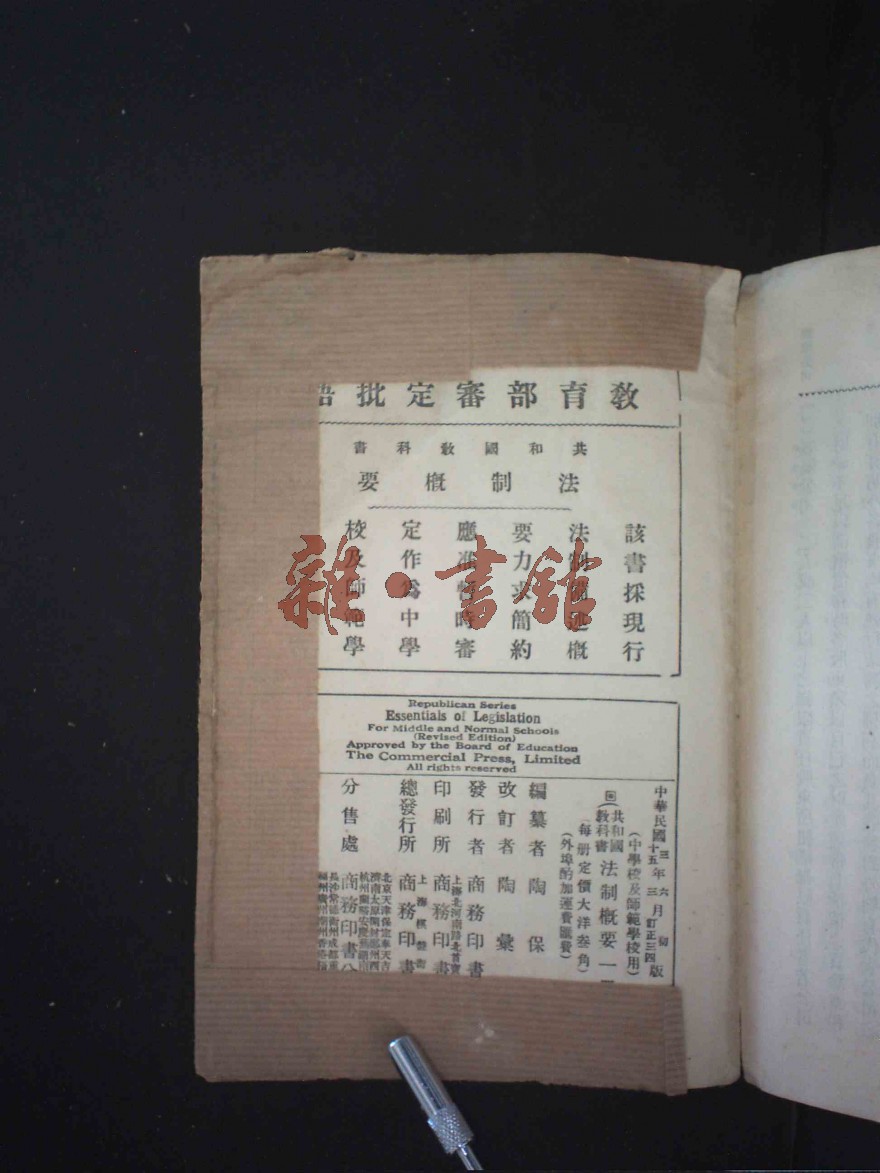 教育部審定批
共和國教科書
法制概要
該書採現行
法制
要力求簡約
應准暫時審
定作爲中學
校及師範學
雜·書館
Republican Series
Essentials of Legislation
For Middle and Normal Schools
(Revised Edition)
Approved by the Board of Education
The Commercial Press, Limited
All rights reserved
中華民國三年六月初版
十五年三月訂正三四版
(中學校及師範學校用)
共和國教科書法制概要一
(每册定價大洋叁角)
(外埠酌加運費匯費)
編纂者陶保
改訂者陶彙
發行者商務印書
上海北河南路北首寶
印刷所商務印書
上海棋盤街
總發行所商務印書
北京天津保定奉天吉
濟南太原開封鄭州西
分售處商務印書